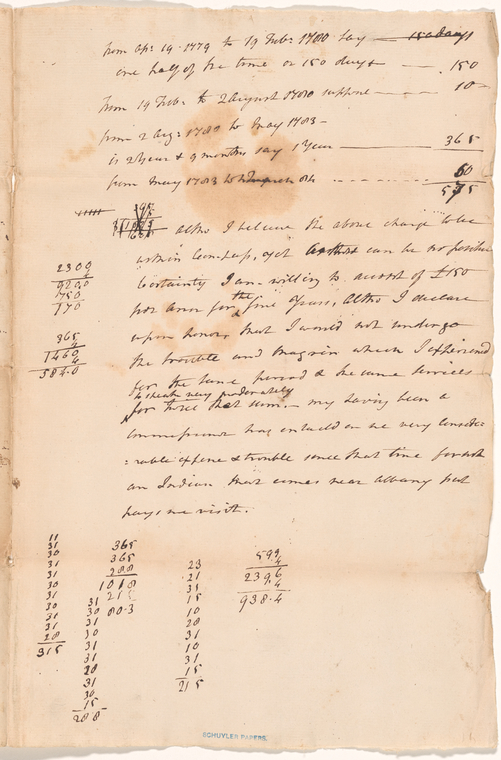 from Apr: 19. 1779 to 19 Feb: 1780 say 150 days
one half of the time or 150 days 150
from 19 Feb: to 2 August 1780 suppose 10
from 2 Aug: 1780 to May 1783 -
is 2 Year & 9 months say 1 Year 365
from May 1783 to 60
575
altho I believe the above charge to be
within Compass, yet as there can be no positive
Certainty I am willing to accept of £150
per Ann for the five Years, Altho I declare
upon honor, that I would not undergo
the trouble and Chagrin which I experienced
for the same period & the same services
to speak very moderately
for twice that sum. - my having been a
Commissioner has entailed on me very conside
: rable expence & trouble since that time for not
an Indian that comes near Albany but
pays me visit.
2300
4
9200
750
170
365
4
1460
4
5840
11
31
30
31
31
30
31
30
31
31
28
315
365
365
288
1018
215
803
31
30
31
30
31
31
28
31
30
15
288
23
21
31
15
10
28
31
10
31
15
215
599
4
2396
4
938.4
SCHUYLER PAPERS